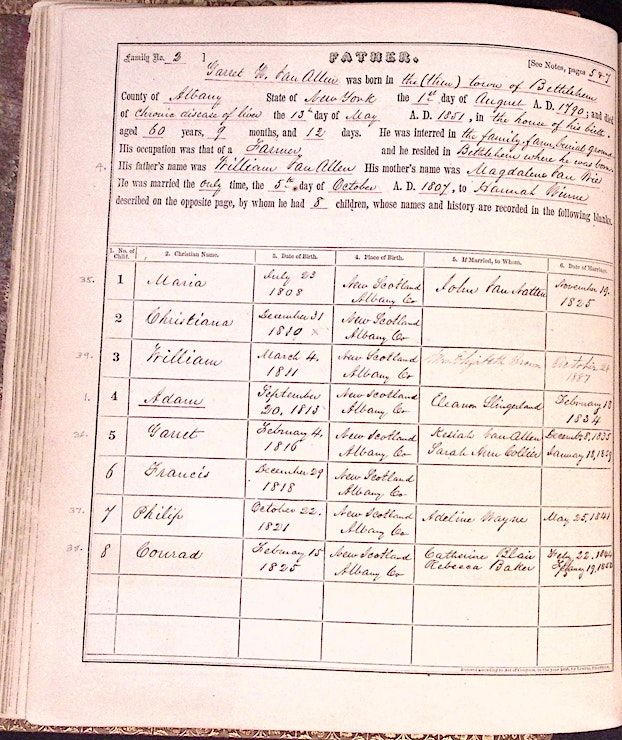 Family No. 2 ]
FATHER.
[See Notes, pages 5 & 7
Garret W. Van Allen was born in the (then) town of Bethlehem
County of Albany State of New York the 1st day of August A. D. 1790; and died
of chronic disease of liver the 13th day of May A. D. 1851, in the house of his birth
aged 60 years, 9 months, and 12 days. He was interred in the family farm burial ground
His occupation was that of a Farmer and he resided in Bethlehem where he was born.
4. His father's name was William Van Allen His mother's name was Magdalene Van Wie
He was married the only time, the 5th day of October A. D. 1807, to Hannah Winne
described on the opposite page, by whom he had 8 children, whose names and history are recorded in the following blanks.
1. No. of Child. 2. Christian Name. 3. Date of Birth. 4. Place of Birth. 5. If Married, to Whom. 6. Date of Marriage.
35. 1 Maria July 23 1808 New Scotland Albany Co John Van Natten November 19. 1825
2 Christiana December 31 1810 x New Scotland Albany Co
39. 3 William March 4. 1811 New Scotland Albany Co Elizabeth October 24
1. 4 Adam September 20, 1813 New Scotland Albany Co Eleanor Slingerland February 18 1834
36. 5 Garret February 4, 1816 New Scotland Albany Co Keziah Van Allen Sarah Ann Collier December 8, 1835 January 18,
6 Francis December 29 1818 New Scotland Albany Co
37. 7 Philip October 22. 1821 New Scotland Albany Co Adeline Wayne May 25, 1841
38. 8 Conrad February 15 1825 New Scotland Albany Co Catherine Blair Rebecca Baker Feby 22, 1844